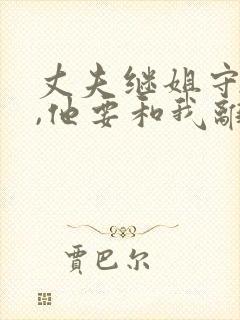 丈夫继姐守
,他要和我离
贾巴尔